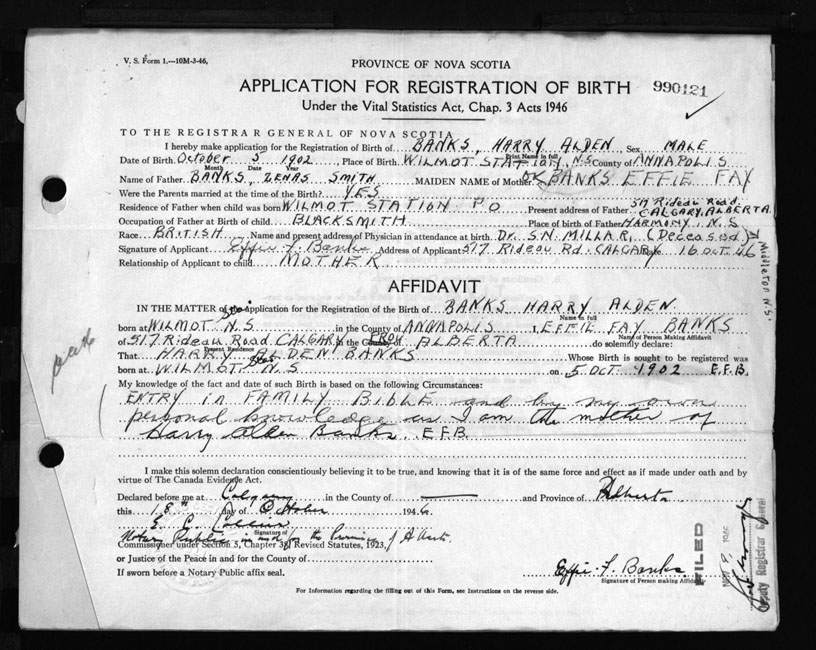 V. S. Form 1.—10M-3-46.
PROVINCE OF NOVA SCOTIA
APPLICATION FOR REGISTRATION OF BIRTH 990121
Under the Vital Statistics Act, Chap. 3 Acts 1946
TO THE REGISTRAR GENERAL OF NOVA SCOTIA
I hereby make application for the Registration of Birth of BANKS, HARRY ALDEN Sex MALE
Print Name in full
Date of Birth October 5 1902 Place of Birth WILMOT STATION, N.S County of ANNAPOLIS
Month Date Year
Name of Father BANKS, ZENAS SMITH MAIDEN NAME of Mother BANKS EFFIE FAY
Were the Parents married at the time of the Birth? YES
Residence of Father when child was born WILMOT STATION P O Present address of Father 517 Rideau Road, CALGARY, ALBERTA
Occupation of Father at Birth of child BLACKSMITH Place of birth of Father HARMONY N.S
Race BRITISH Name and present address of Physician in attendance at birth Dr. S.N. MILLAR, (Deceased) Middleton N.S.
Signature of Applicant Effie F. Banks Address of Applicant 517 Rideau Rd. CALGARY 16 OCT 46
Relationship of Applicant to child MOTHER
AFFIDAVIT
IN THE MATTER of the application for the Registration of the Birth of BANKS HARRY ALDEN
Name in full
born at WILMOT Stn N.S in the County of ANNAPOLIS I, EFFIE FAY BANKS
Name of Person Making Affidavit
of 517 Rideau Road CALGARY in the County PROV ALBERTA do solemnly declare:
Present Residence
That HARRY ALDEN BANKS Whose Birth is sought to be registered was
born at WILMOT Stn N S on 5 OCT 1902 E.F.B.
My knowledge of the fact and date of such Birth is based on the following Circumstances:
ENTRY in FAMILY BIBLE and by my own
personal knowledge as I am the mother of
Harry Alden Banks E.F.B.
I make this solemn declaration conscientiously believing it to be true, and knowing that it is of the same force and effect as if made under oath and by
virtue of The Canada Evidence Act.
Declared before me at Calgary in the County of and Province of Alberta
this 18th day of October 1946.
E. C. Collins
Signature of
Notary Public in and for the Province of Alberta.
Commissioner under Section 5, Chapter 38, Revised Statutes, 1923,
or Justice of the Peace in and for the County of
If sworn before a Notary Public affix seal.
Effie F. Banks
Signature of Person making Affidavit
FILED
Deputy Registrar General
For Information regarding the filling out of this Form, see Instructions on the reverse side.